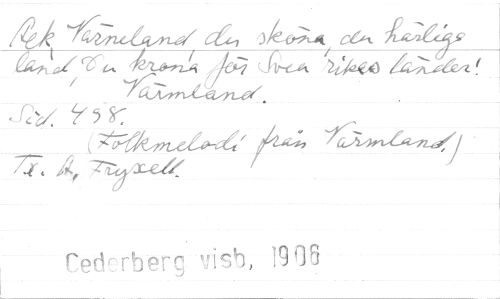 Ack, Värmeland, du sköna, du härliga
land, Du krona för Svea rikes länder!
Värmland.
Sid. 498.
(Folkmelodi från Värmland.)
Tx. A. Fryxell.
Cederberg visb, 1906